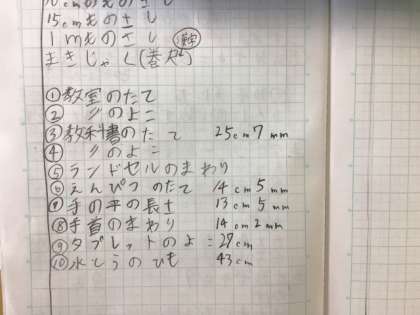 15cmものさし
1mものさし
まきじゃく(巻尺)
①教室のたて
② 〃のよこ
③教科書のたて 25cm7mm
④ 〃のよこ
⑤ランドセルのまわり
⑥えんぴつのたて 14cm5mm
⑦手の平の長さ 13cm5mm
⑧手首のまわり 14cm2mm
⑨タブレットのよこ 27cm
⑩水とうのひも 43cm